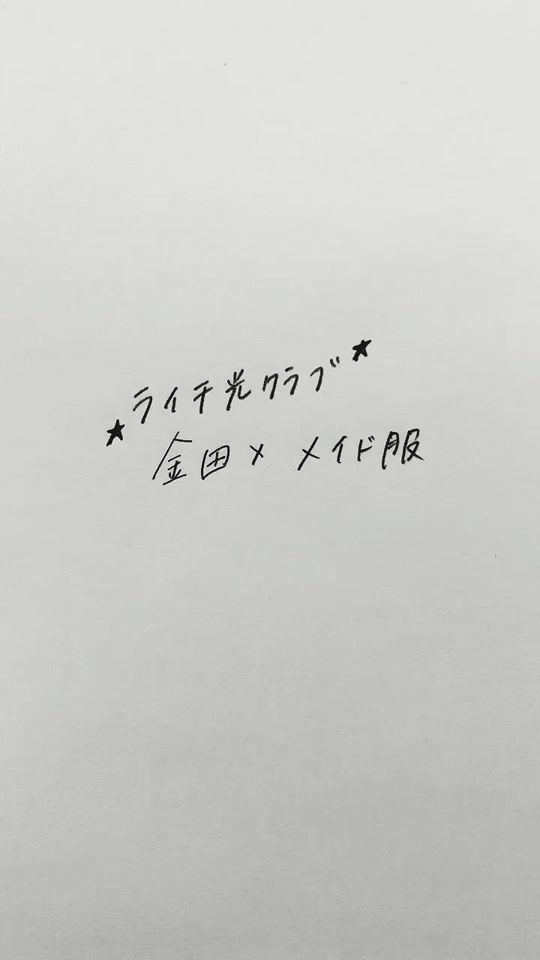 ★ライチ光クラブ★
金田× メイド服